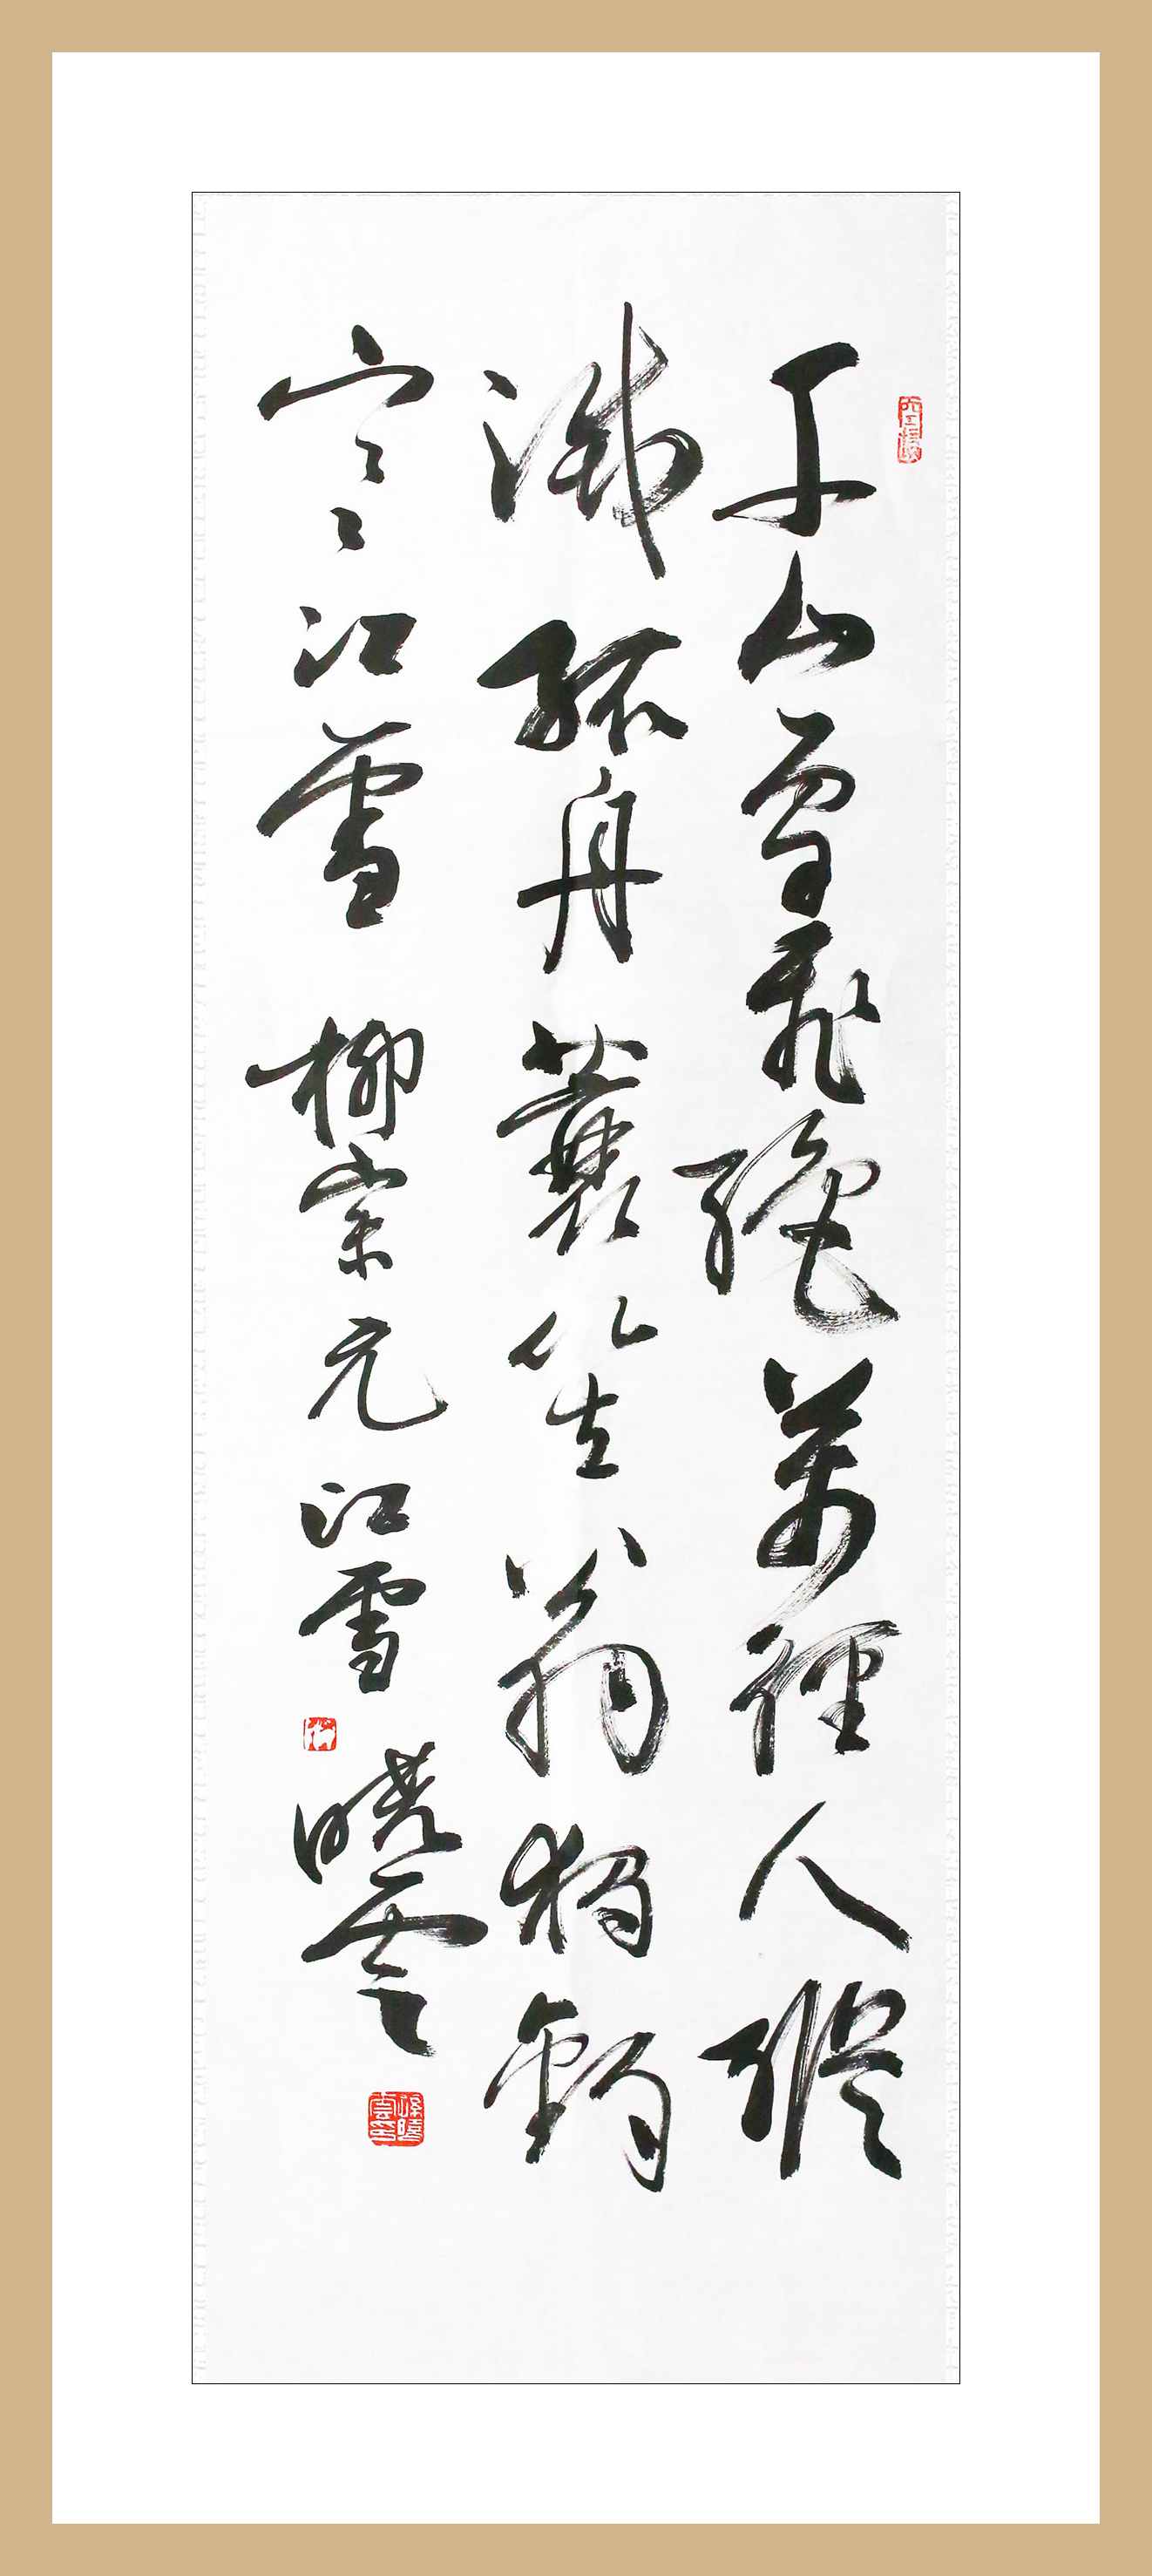 千山鳥飛絕萬徑人蹤
滅孤舟蓑笠翁獨釣
寒江雪 柳宗元江雪 曉雲
孫曉雲印